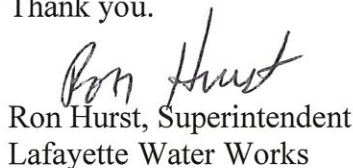 Thank you.
Ron Hurst
Ron Hurst, Superintendent
Lafayette Water Works